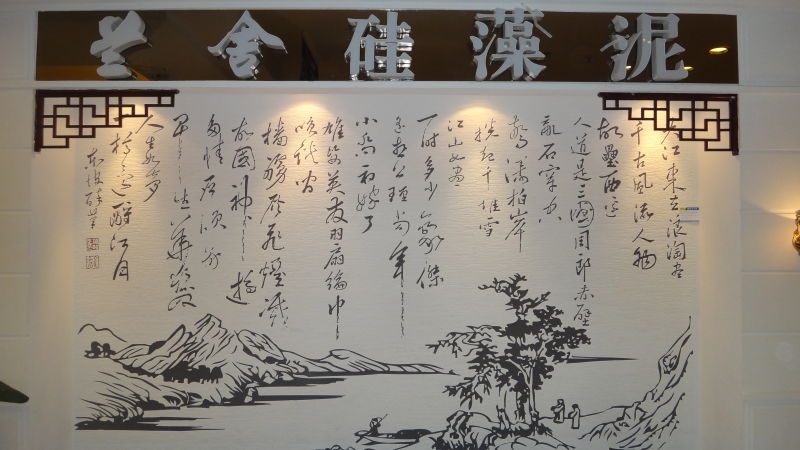 兰舍硅藻泥
大江東去浪淘盡
千古風流人物
故壘西邊
人道是三國周郎赤壁
亂石穿空
驚濤拍岸
捲起千堆雪
江山如畫
一時多少豪傑
遙想公瑾當年
小喬初嫁了
雄姿英發羽扇綸巾
談笑間
檣櫓灰飛煙滅
故國神遊
多情應笑我
早生華髮
人生如夢
一樽還酹江月